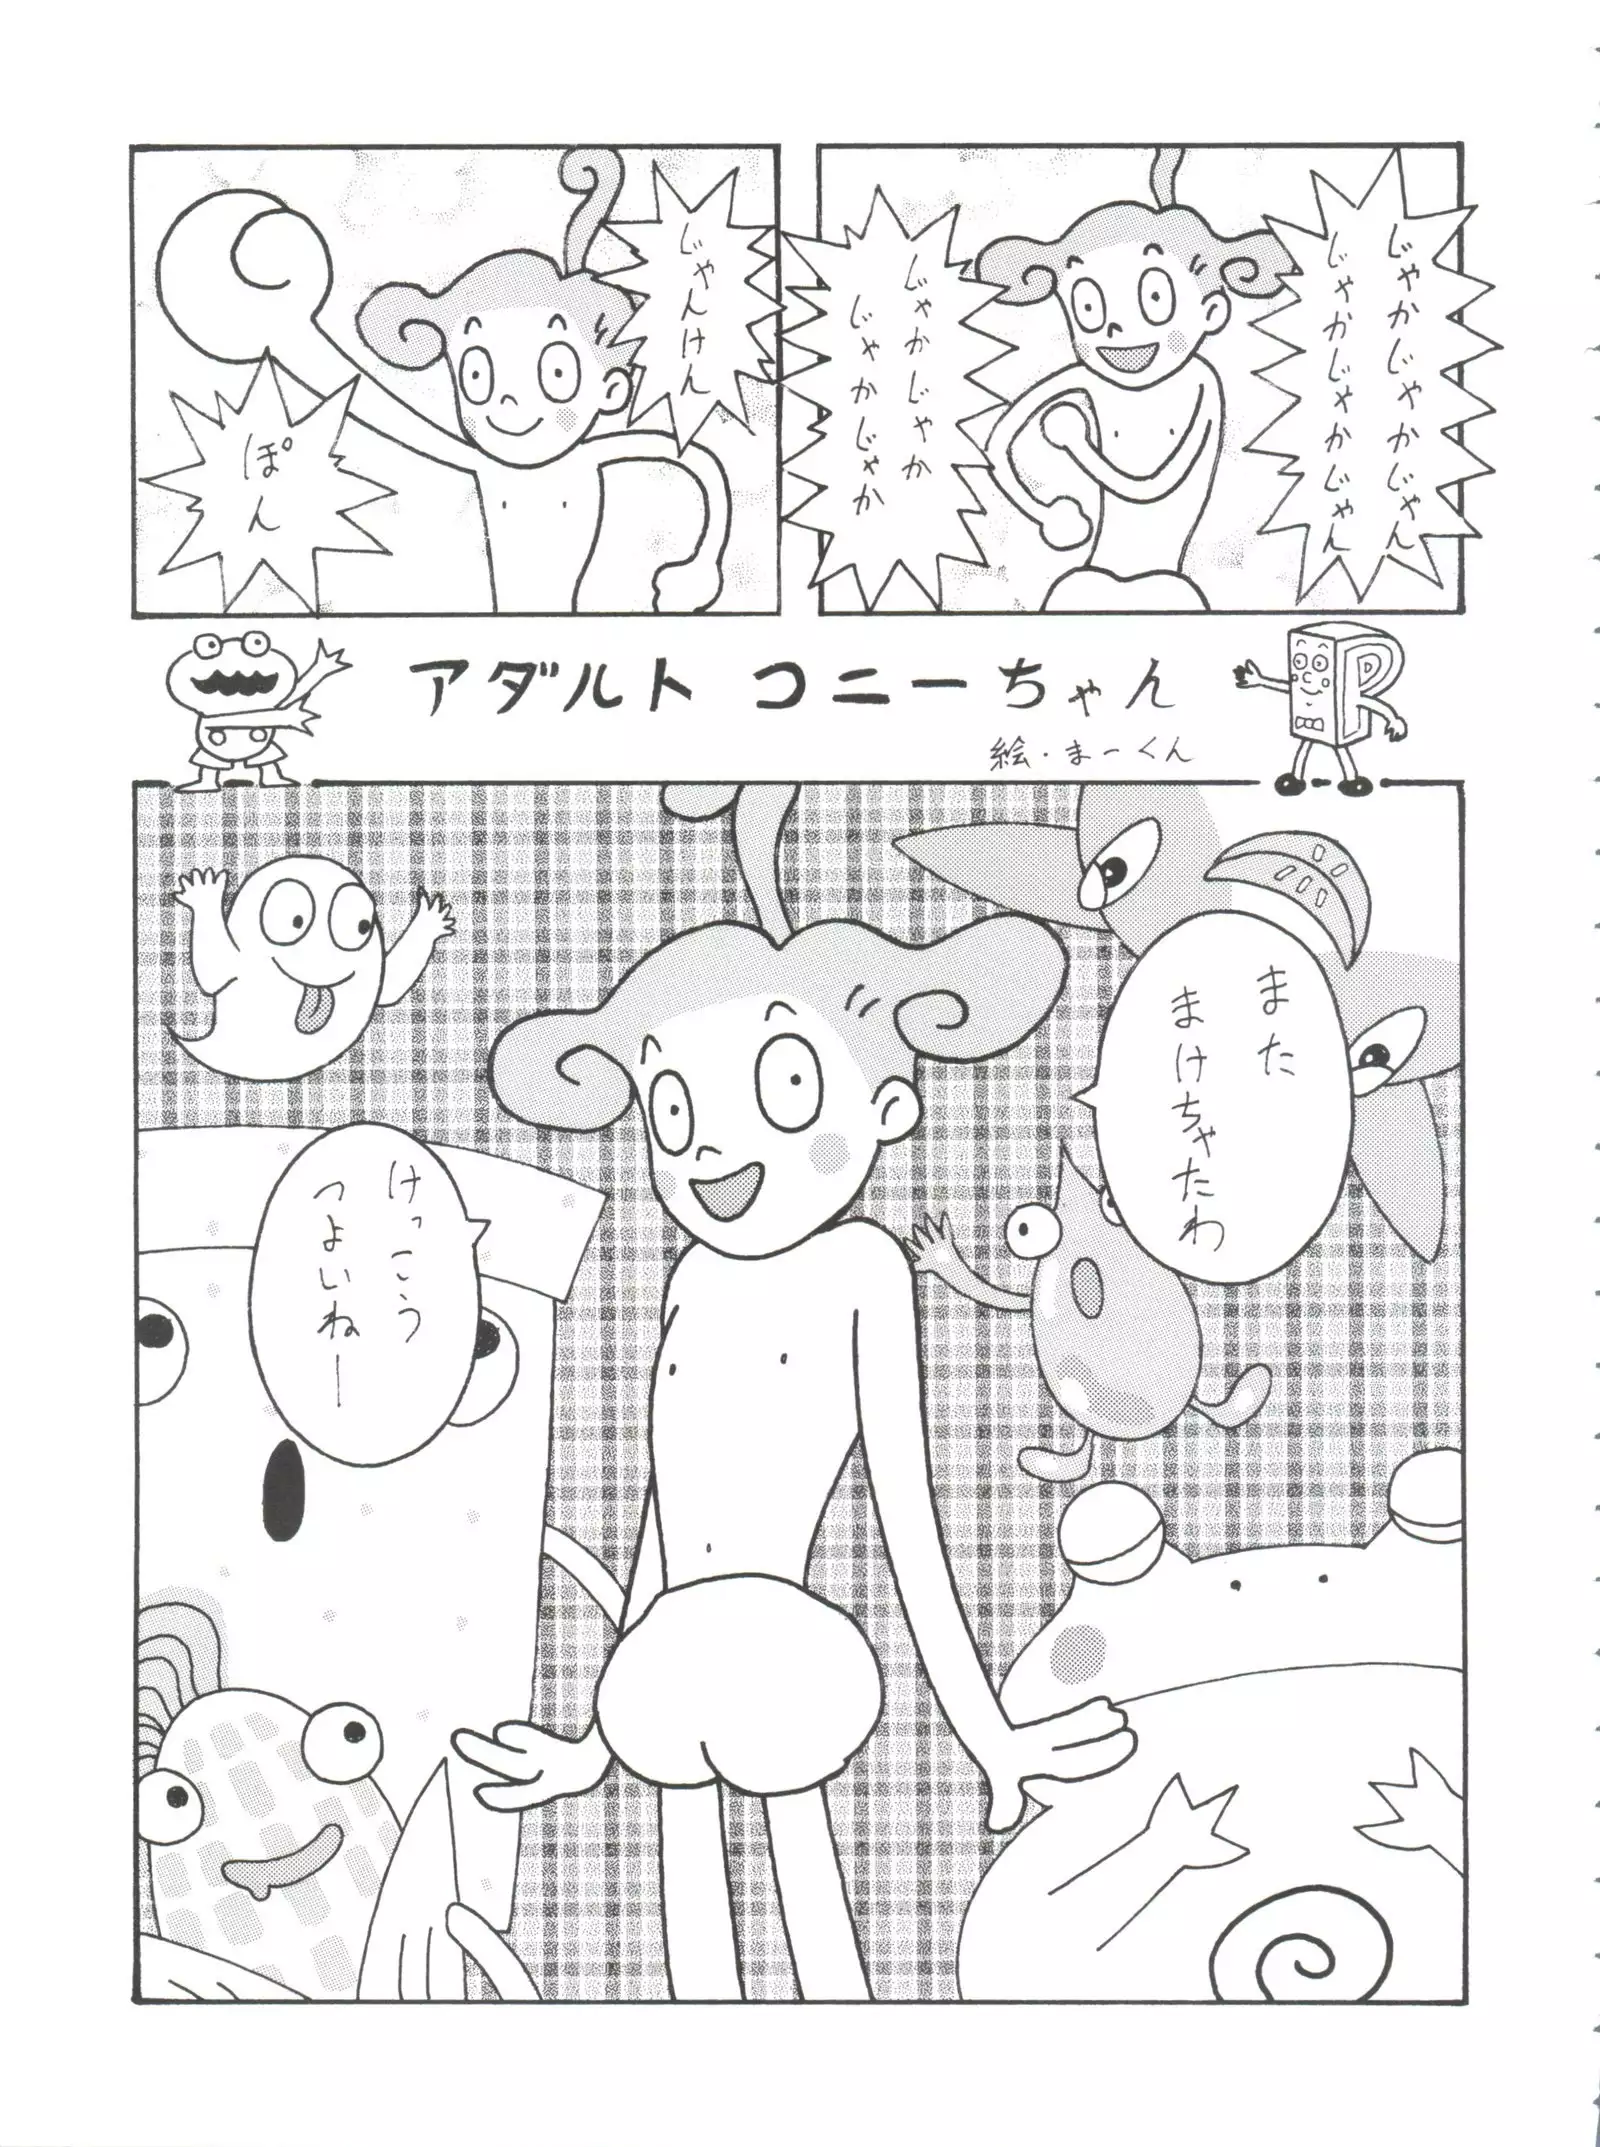 じゃかじゃかじゃん
じゃかじゃかじゃん
じゃかじゃか
じゃかじゃか
じゃんけん
ぽん
アダルト コニーちゃん
絵・まーくん
また
まけちゃたわ
けっこう
つよいねー